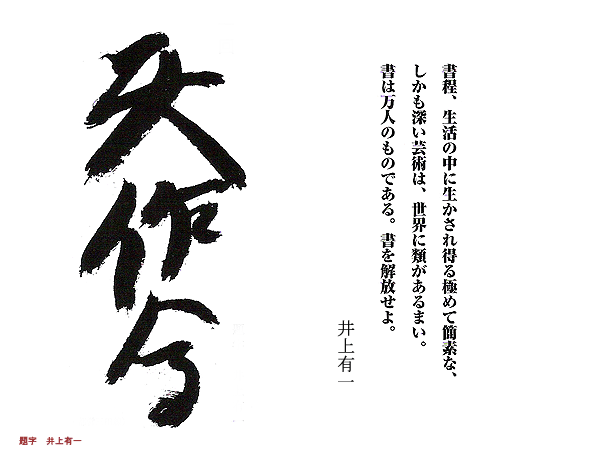 書程、生活の中に生かされ得る極めて簡素な、
しかも深い芸術は、世界に類があるまい。
書は万人のものである。書を解放せよ。
井上有一
天作会
題字　井上有一